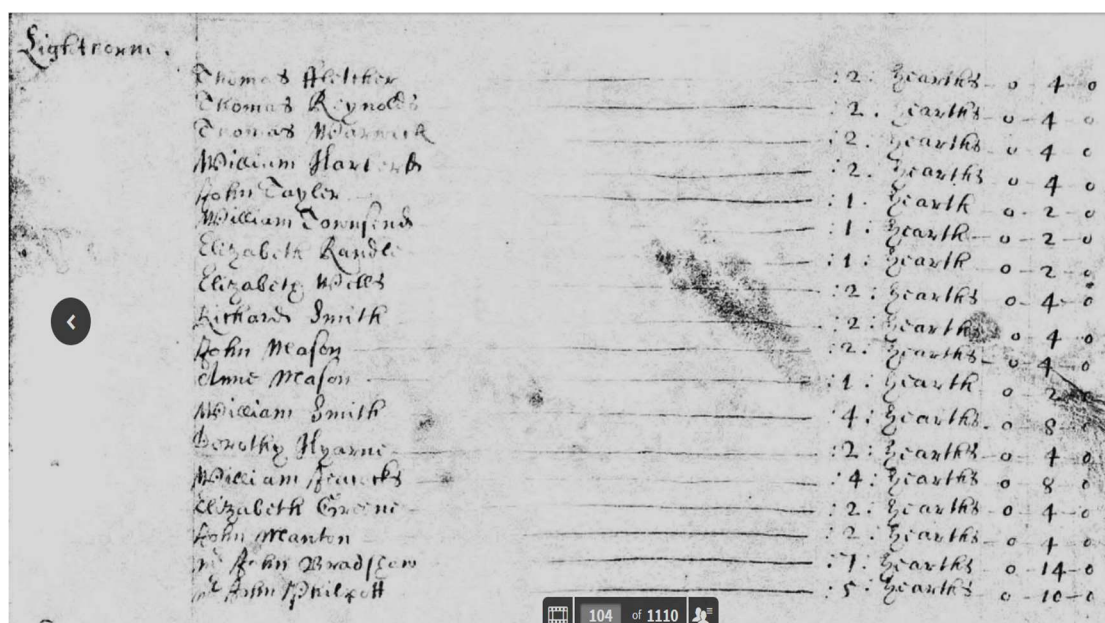 Lightrorne.
Thomas ffletcher :2: hearths 0 4 0
Thomas Reynolds :2. hearths 0-4 0
Thomas Warwick :2: hearths 0 4 0
William :2. hearths 0 4 0
John Tayler :1. hearth 0-2-0
William Townsend :1: hearth 0-2-0
Elizabeth Randle :1: hearth 0 2 0
Elizabeth Wills :2: hearths 0-4-0
Richard Smith :2: hearths 0 4 0
John Mason :2. hearths 0 4 0
Anne Mason :1: hearth 0 2
William Smith :4: hearths 0 8 0
Dorothy Hyarne :2: hearths 0-4 0
William :4: hearths 0 8 0
Elizabeth Greene :2: hearths 0-4-0
John Manton :2: hearths 0 4 0
mr John Bradshew hearths 0 14-0
mr John Philpott :5: hearths 0 10-0
104 of 1110